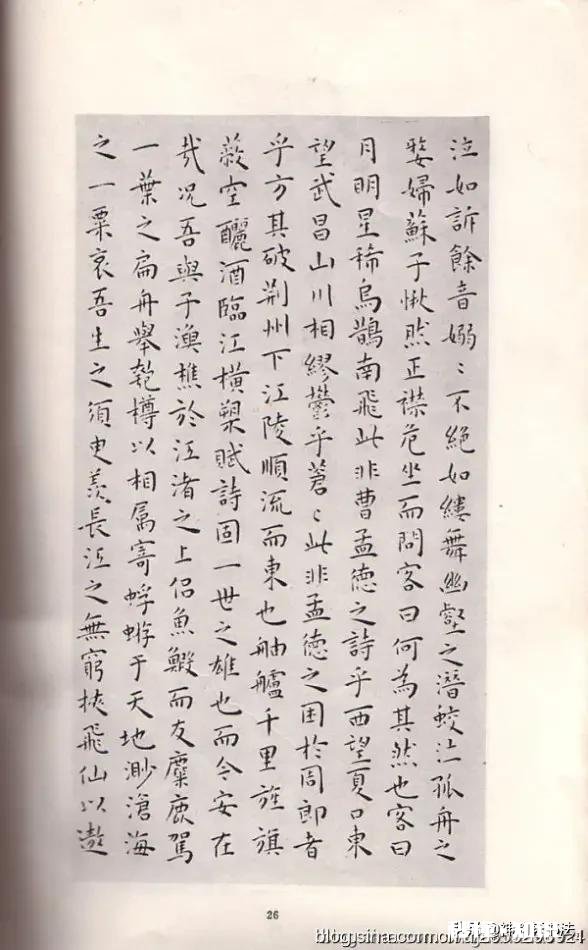 泣如訴餘音嫋〻不絕如縷舞幽壑之潛蛟泣孤舟之
嫠婦蘇子愀然正襟危坐而問客曰何為其然也客曰
月明星稀烏鵲南飛此非曹孟德之詩乎西望夏口東
望武昌山川相繆鬱乎蒼〻此非孟德之困於周郎者
乎方其破荊州下江陵順流而東也舳艫千里旌旗
蔽空釃酒臨江橫槊賦詩固一世之雄也而今安在
哉況吾與子漁樵於江渚之上侶魚鰕而友麋鹿駕
一葉之扁舟舉匏樽以相屬寄蜉蝣于天地渺滄海
之一粟哀吾生之須臾羨長江之無窮挾飛仙以遨
26